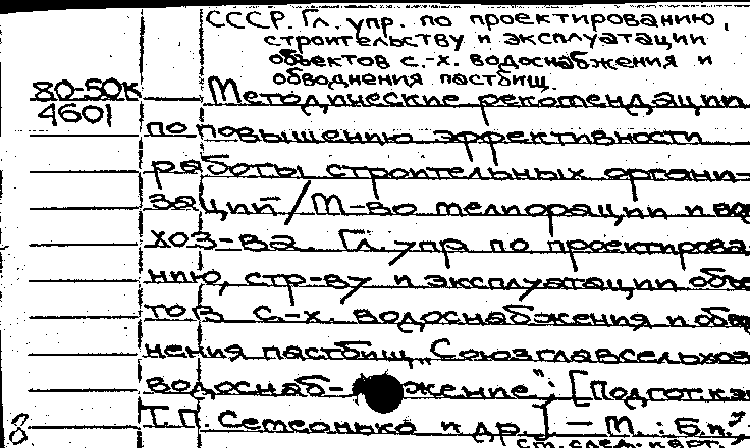 СССР. Гл. упр. по проектированию,
строительству и эксплуатации
объектов с.-х. водоснабжения и
обводнения пастбищ.
80-50к
4601
Методические рекомендации
по повышению эффективности
работы строительных органи-
заций / М-во мелиорации и вод
хоз-ва. Гл. упр по проектирова-
нию, стр-ву и эксплуатации объе
тов с.-х. водоснабжения и обв
нения пастбищ „Союзглавсельхоз
водоснаб- жение"; [Подгот.
Т.П. и др.] – М. : Б.и.
8
см. след. карт.